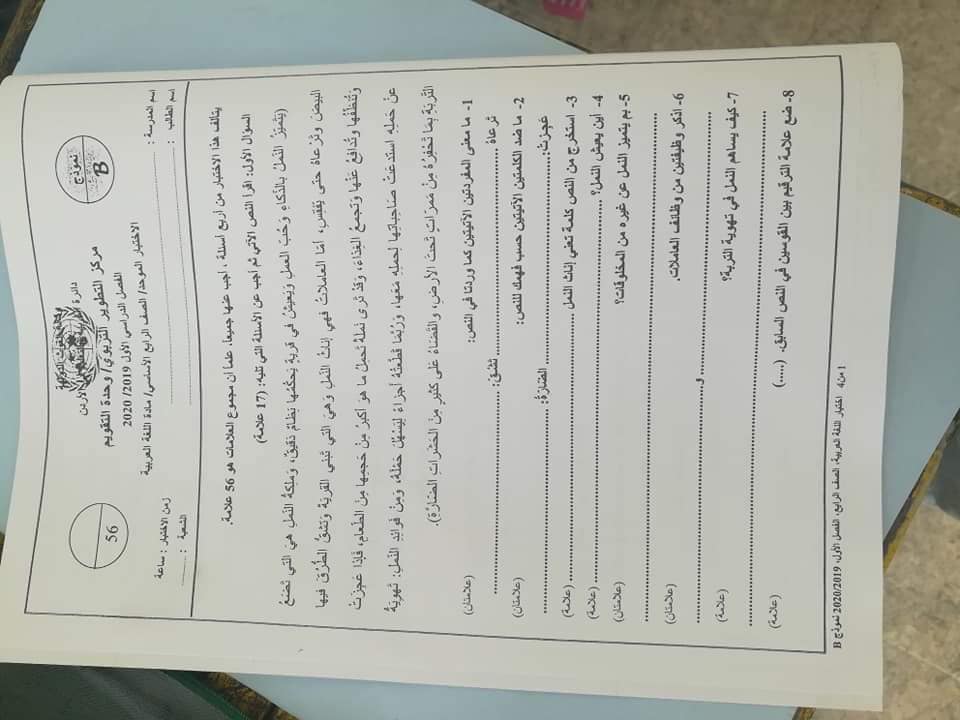 نموذج
B
دائرة
الأردن
مركز التطوير التربوي/ وحدة التقويم
الفصل الدراسي الأول 2019/ 2020
الاختبار الموحد/ الصف الرابع الأساسي/ مادة اللغة العربية
56
اسم المدرسة : زمن الاختبار : ساعة
اسم الطالب : الشعبة :
يتألف هذا الاختبار من أربع أسئلة ، أجب عنها جميعا، علما أن مجموع العلامات هو 56 علامة.
السؤال الأول: اقرأ النص الآتي ثم أجب عن الأسئلة التي تليه: (17 علامة)
(يَتَمَيَّزُ النَّملُ بِالذَّكاءِ وَحُبِّ العملِ وَيَعيشُ في قريةٍ يَحكُمُها نِظامٌ دَقيقٌ، وَمَلِكَةُ النَّملِ هيَ التي تَضعُ
البيضَ وَتَرعاهُ حتى يَفقِسَ، أمّا العاملاتُ فهي إناثُ النَّملِ وَهيَ التي تَبْني القريةَ وَتَشقُّ الطُّرُقَ فيها
وَتُنَظِّفُها وَتُدافِعُ عَنْها وَتَجمعُ الغِذاءَ، وَقَدْ تَرى نَملةً تَحملُ ما هو أكبرُ مِنْ حَجمِها مِنْ الطَّعامِ، فَإذا عَجَزتْ
عنْ حَملِهِ استَدعَتْ صاحِباتِها لِحملِهِ مَعَها، وَرُبَّما قَطَّعَتْهُ أجزاءً لِيَسْهُلَ حَمْلُهُ، وَمِنْ فوائدِ النَّملِ: تَهويَةُ
التُّرْبَةِ بِمَا تَحْفِرُهُ مِنْ مَمَرّاتٍ تَحتَ الأرْضِ، والقَضَاءُ على كَثيرٍ مِنَ الحَشَراتِ الضارَّةِ).
1- ما معنى المفردتين الآتيتين كما وردتا في النص: (علامتان)
تَرعاهُ .................... تَشقّ: ....................
2- ما ضد الكلمتين الآتيتين حسب فهمك للنص: (علامتان)
عَجَزتْ: .................... الضّارة: ....................
3- استخرج من النص كلمة تعني إناث النمل .................... (علامة)
4- أين يعيش النمل؟ .................... (علامة)
5- بم يتميز النمل عن غيره من المخلوقات؟ (علامتان)
....................
6- اذكر وظيفتين من وظائف العاملات. (علامتان)
.................... و ....................
7- كيف يساهم النمل في تهوية التربة؟ (علامة)
....................
8- ضع علامة الترقيم بين القوسين في النص السابق. (....) (علامة)
1 من4، اختبار اللغة العربية، الصف الرابع، الفصل الأول، 2020/2019 نموذج B